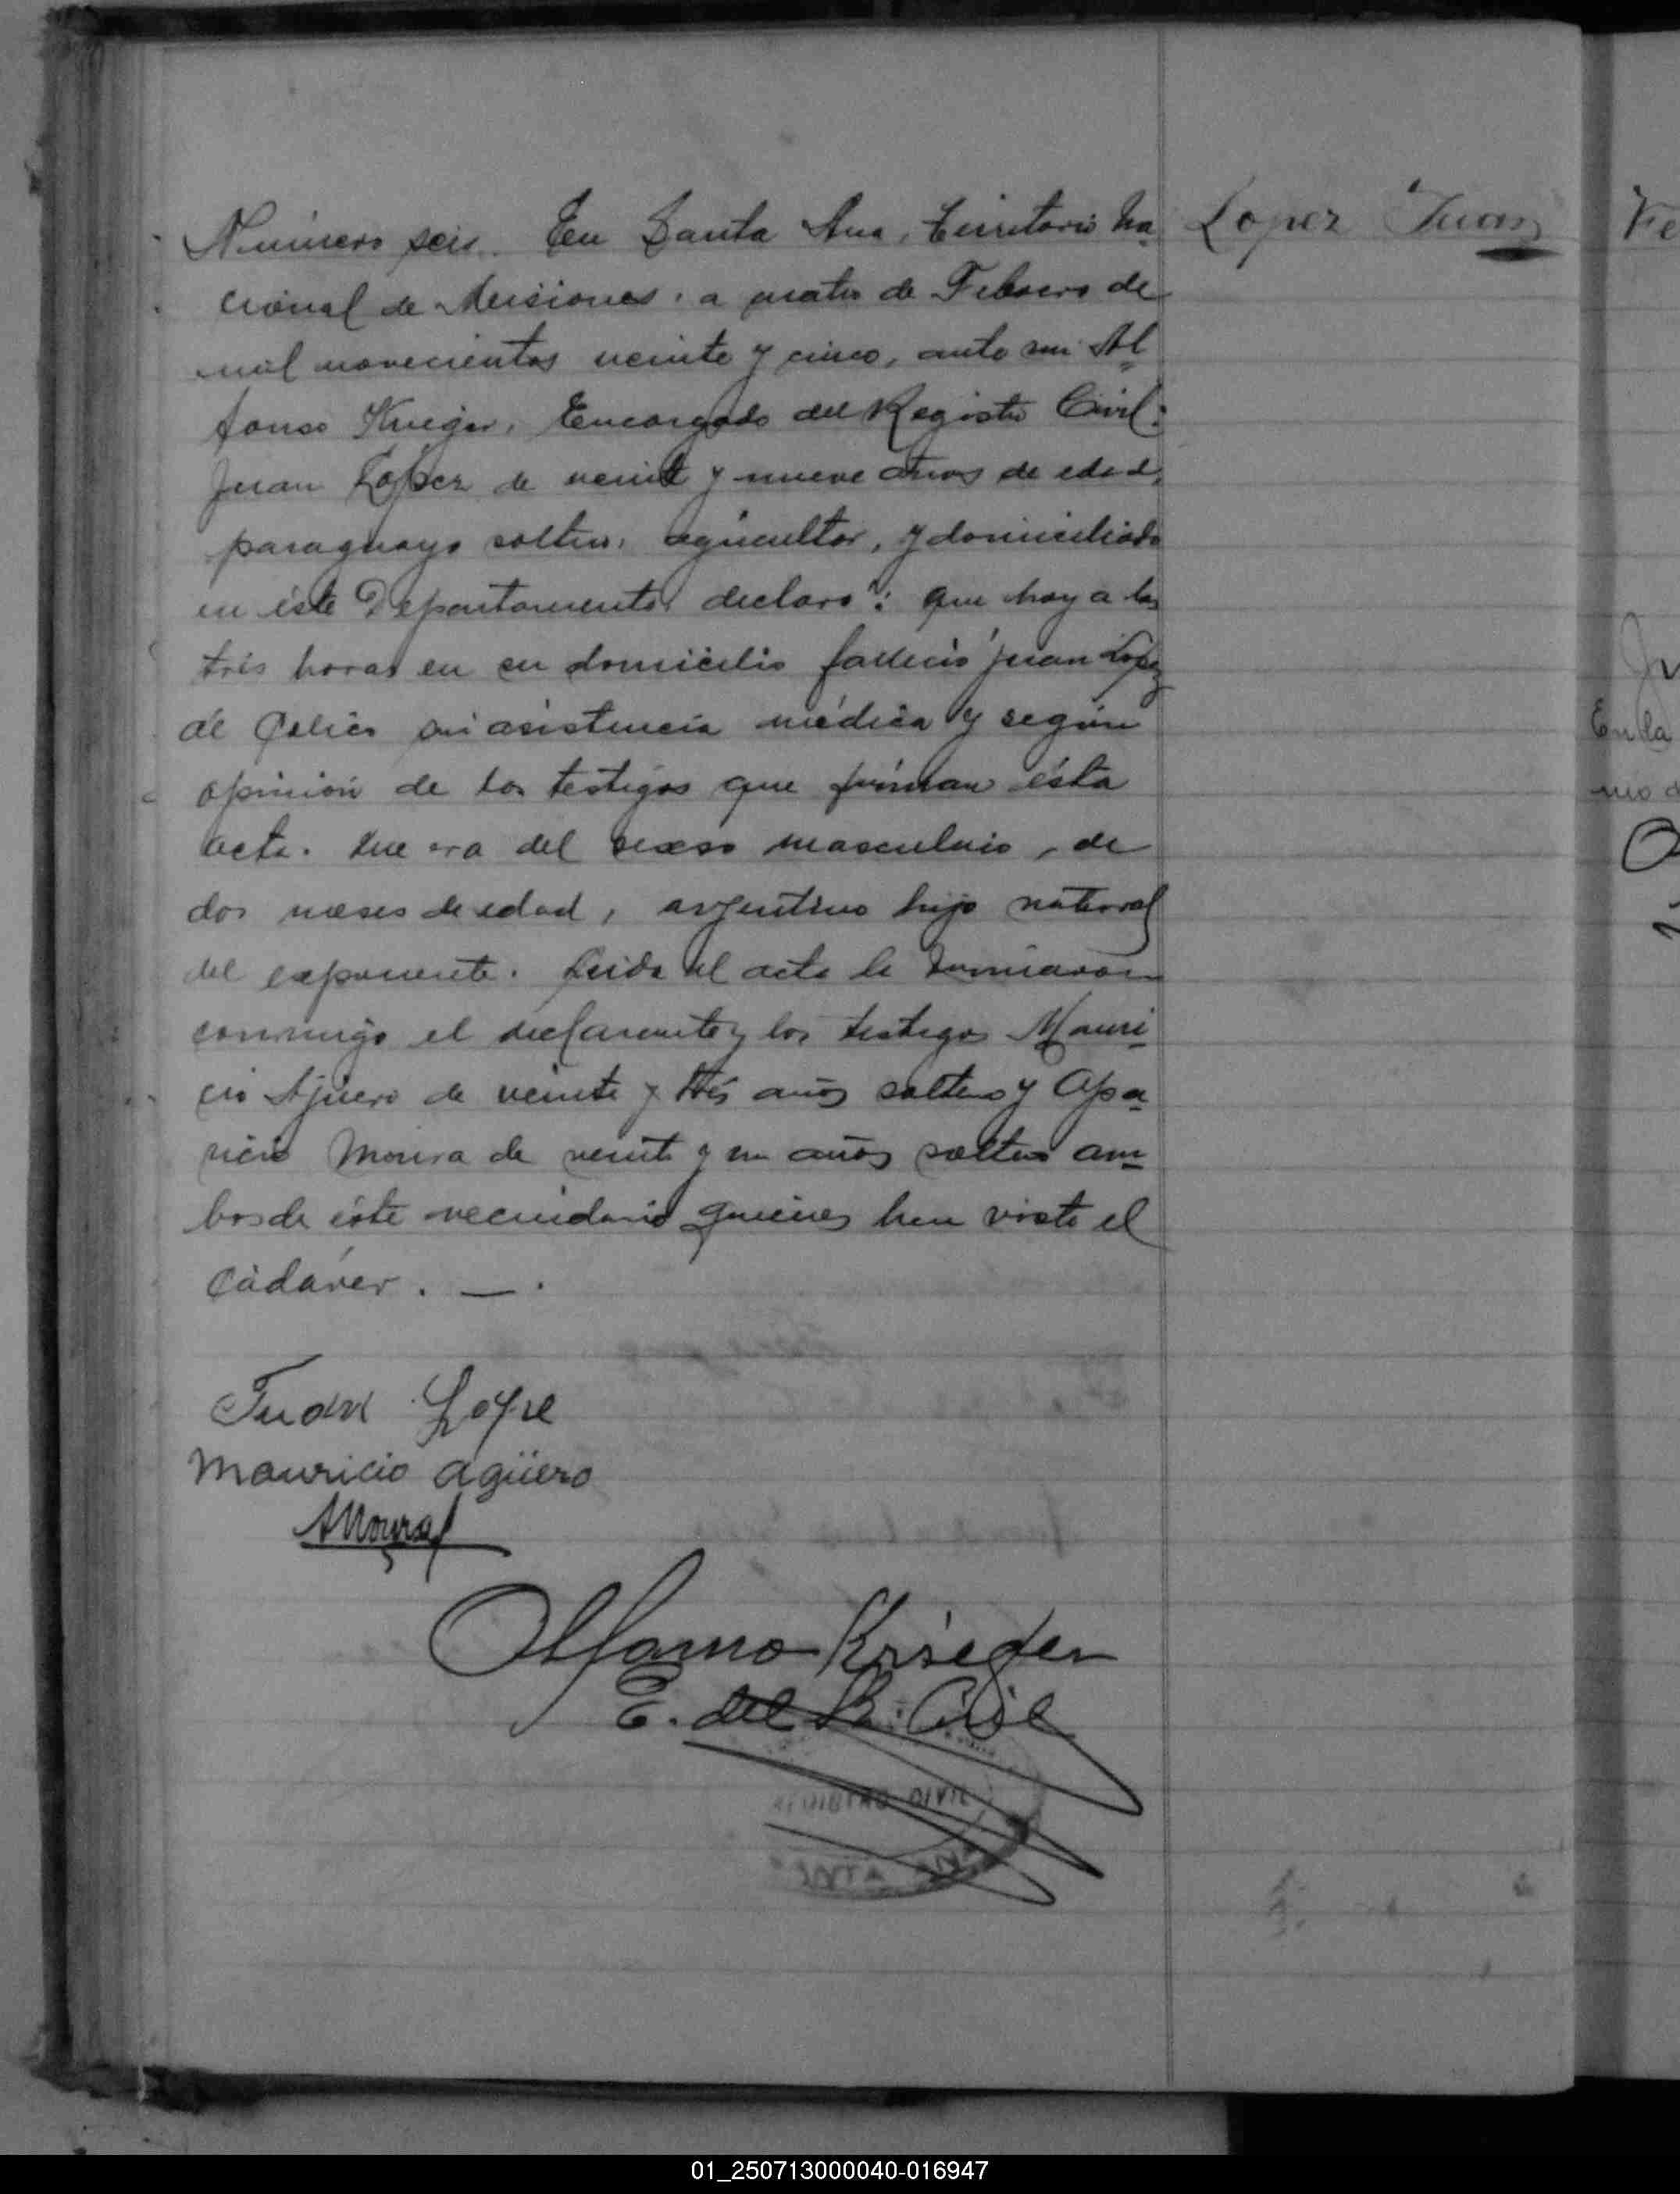 Número seis. En Santa Ana, Territorio Na-
cional de Misiones, a cuatro de Febrero de
mil novecientos veinte y cinco, ante mi Al-
fonso Krieger, Encargado del Registro Civil:
Juan López de veinte y nueve años de edad,
paraguayo soltero, agricultor, y domiciliado
en éste Departamento, declaró: que hoy a las
trés horas en su domicilio falleció Juan López
de sin asistencia médica y según
opinión de los testigos que firman ésta
acta. Que era del sexso masculino, de
dos meses de edad, argentino hijo natural
del exponente. Leida el acta la firmaron
conmigo el declarante y los testigos Mauri-
cio Agüero de veinte y trés años soltero y Apa-
ricio Moura de veinte y un años soltero am-
bos de éste vecindario quienes han visto el
Cádáver. — .
Lopez Juan
Fe
En la
mo
Juan Lope
Mauricio agüero
AMoura
Alfonso Krieger
E. del R. Civil
REGISTRO CIVIL
SANTA ANA
01_250713000040-016947